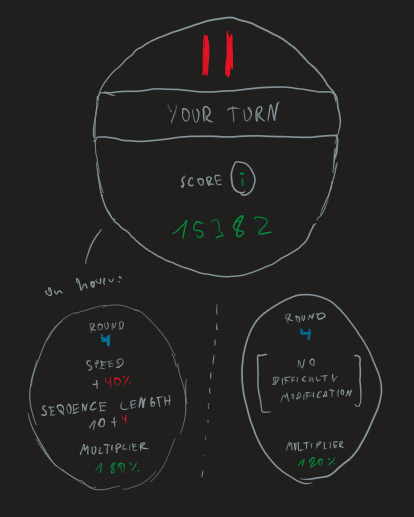 YOUR TURN
SCORE i
15382
on hover:
ROUND
4
SPEED
+ 40%
SEQUENCE LENGTH
10 + 4
MULTIPLIER
180%
ROUND
4
NO
DIFFICULTY
MODIFICATION
MULTIPLIER
120%